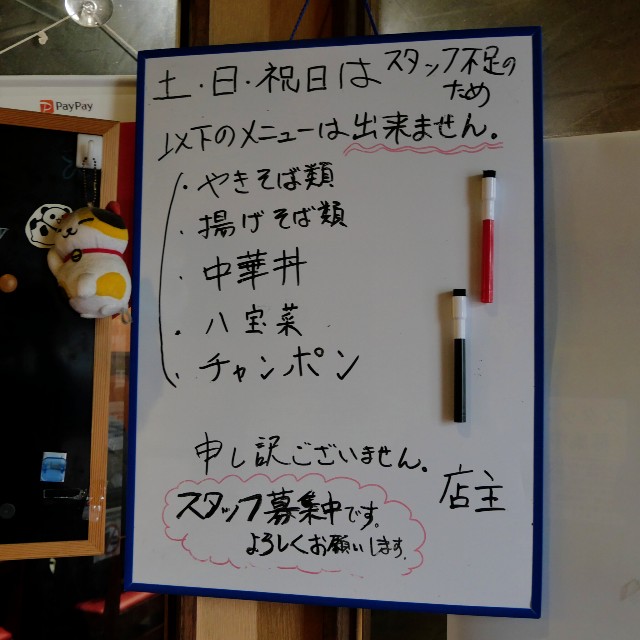 PayPay
土・日・祝日は スタッフ不足の
ため
以下のメニューは出来ません。
・やきそば類
・揚げそば類
・中華丼
・八宝菜
・チャンポン
申し訳ございません。
店主
スタッフ募集中です。
よろしくお願いします。